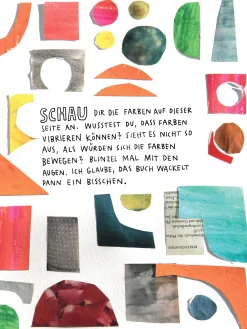 SCHAU DIR DIE FARBEN AUF DIESER
SEITE AN. WUSSTEST DU, DASS FARBEN
VIBRIEREN KÖNNEN? SIEHT ES NICHT SO
AUS, ALS WÜRDEN SICH DIE FARBEN
BEWEGEN? BLINZEL MAL MIT DEN
AUGEN. ICH GLAUBE, DAS BUCH WACKELT
DANN EIN BISSCHEN.